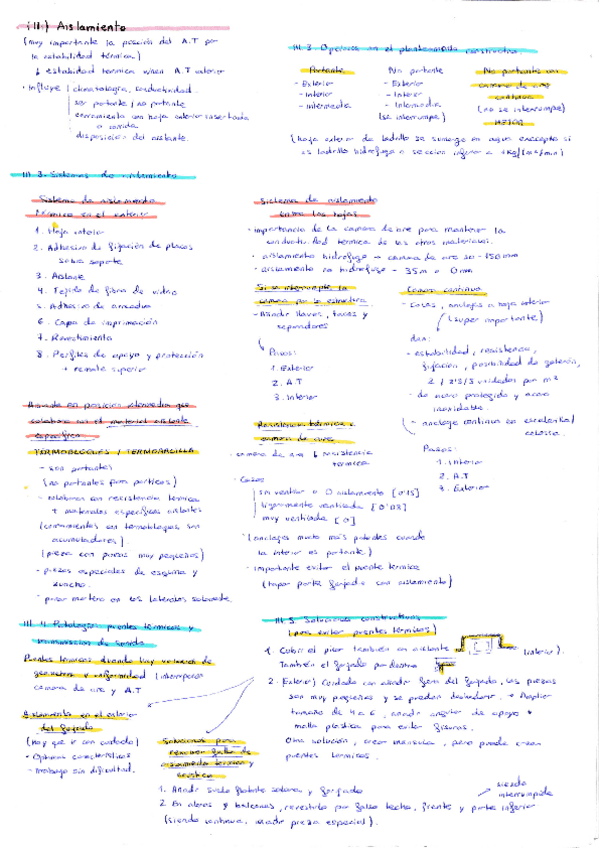 (III) Aislamiento
(muy importante la posición del A.T por
la estabilidad térmica)
↓ estabilidad térmica when A.T exterior
· Influye
climatología, conductividad.
ser portante / no portante
cerramiento con hoja exterior insertada
o corrida
disposición del aislante.
III. 2. Opciones en el planteamiento constructivo.
Portante
- Exterior
- Interior
- Intermedia
No portante
- Exterior
- Interior
- Intermedia
(se interrumpe)
No portante con
camara de aire
continua
(no se interrumpe)
MEJOR
(hoja exterior de ladrillo se sumerge en agua excepto si
es ladrillo hidrofugo o sección inferior a 1Kg/(m²/min)
III. 3. Sistemas de aislamiento
Sistema de aislamiento
térmico en el exterior
1. Hoja interior
2. Adhesivo de fijación de placas
sobre soporte
3. Aislante
4. Tejido de fibra de vidrio
5. Adhesivo de armadura
6. Capa de imprimación
7. Revestimiento
8. Perfiles de apoyo y protección
+ remate superior
Sistema de aislamiento
entre las hojas
· importancia de la camara de aire para mantener la
conductividad térmica de los otros materiales.
- aislamiento hidrofugo → camara de aire 30 - 150 mm
- aislamiento no hidrofugo -
Si se interrumpe la
camara por la estructura
- Añadir llaves, tacos y
separadores
Pasos:
1. Exterior
2. A.T
3. Interior
Camara continua
- cosas, anclajes a hoja interior
(super importante)
dan:
- estabilidad, resistencia,
fijación, posibilidad de
2 / 2'5/3 unidades por m²
- de acero protegido y acero
inoxidable.
- anclaje continuo en
Pasos:
1. Interior
2. A.T
3. Exterior
Aislante en posición intermedia que
colabora con el material aislante
específico
TERMOBLOQUES / TERMOARCILLA
- son portantes
(no portantes para porticos)
- colaboran con resistencia térmica
+ materiales específicos aislantes
(cerramientos con termobloques son
acumuladores).
(pieza con poros muy pequeños)
- piezas especiales de esquina y
zuncho.
- poner mortero en los laterales solamente.
Resistencia térmica y
camara de aire
- camara de aire ↓ resistencia
térmica
- Casos
sin ventilar o 0 aislamiento [0'18]
ligeramente ventilada [0'08]
muy ventilada [0]
- (anclajes mucho más pesados cuando
la interior es portante)
- importante evitar el puente térmico
(tapar parte forjado con aislamiento)
III. 4. Patologías puentes térmicos y
transmisión de sonido
Puentes térmicos cuando hay variación de
geometría o uniformidad (interrupción
camara de aire y A.T
Aislamiento en el exterior
del forjado
(hay que ir con cuidado)
- Optimas características
- trabajo sin dificultad.
Soluciones para
resolver fallo de
aislamiento térmico y
acústico
1. Añadir suelo flotante sobre y forjado
2. En aleros y balcones, revestirlo por falso techo, frentes y parte inferior
(siendo continua, añadir pieza especial).
siendo
interrumpida
III. 5. Soluciones constructivas
(para evitar puentes térmicos)
1. Cubrir el pilar también en aislante
(interior).
También el forjado por dentro
2. Exterior) Cuidado con añadir fuera del forjado, las piezas
son muy pequeñas y se pueden
tamaño de 4 a 6, añadir angular de apoyo +
malla plástica para evitar fisuras.
Otra solución, crear mensula, pero puede crear
puentes térmicos.